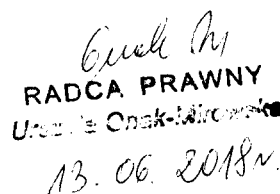 RADCA PRAWNY
Urszula Onak-Mirowska
13. 06. 2018r.